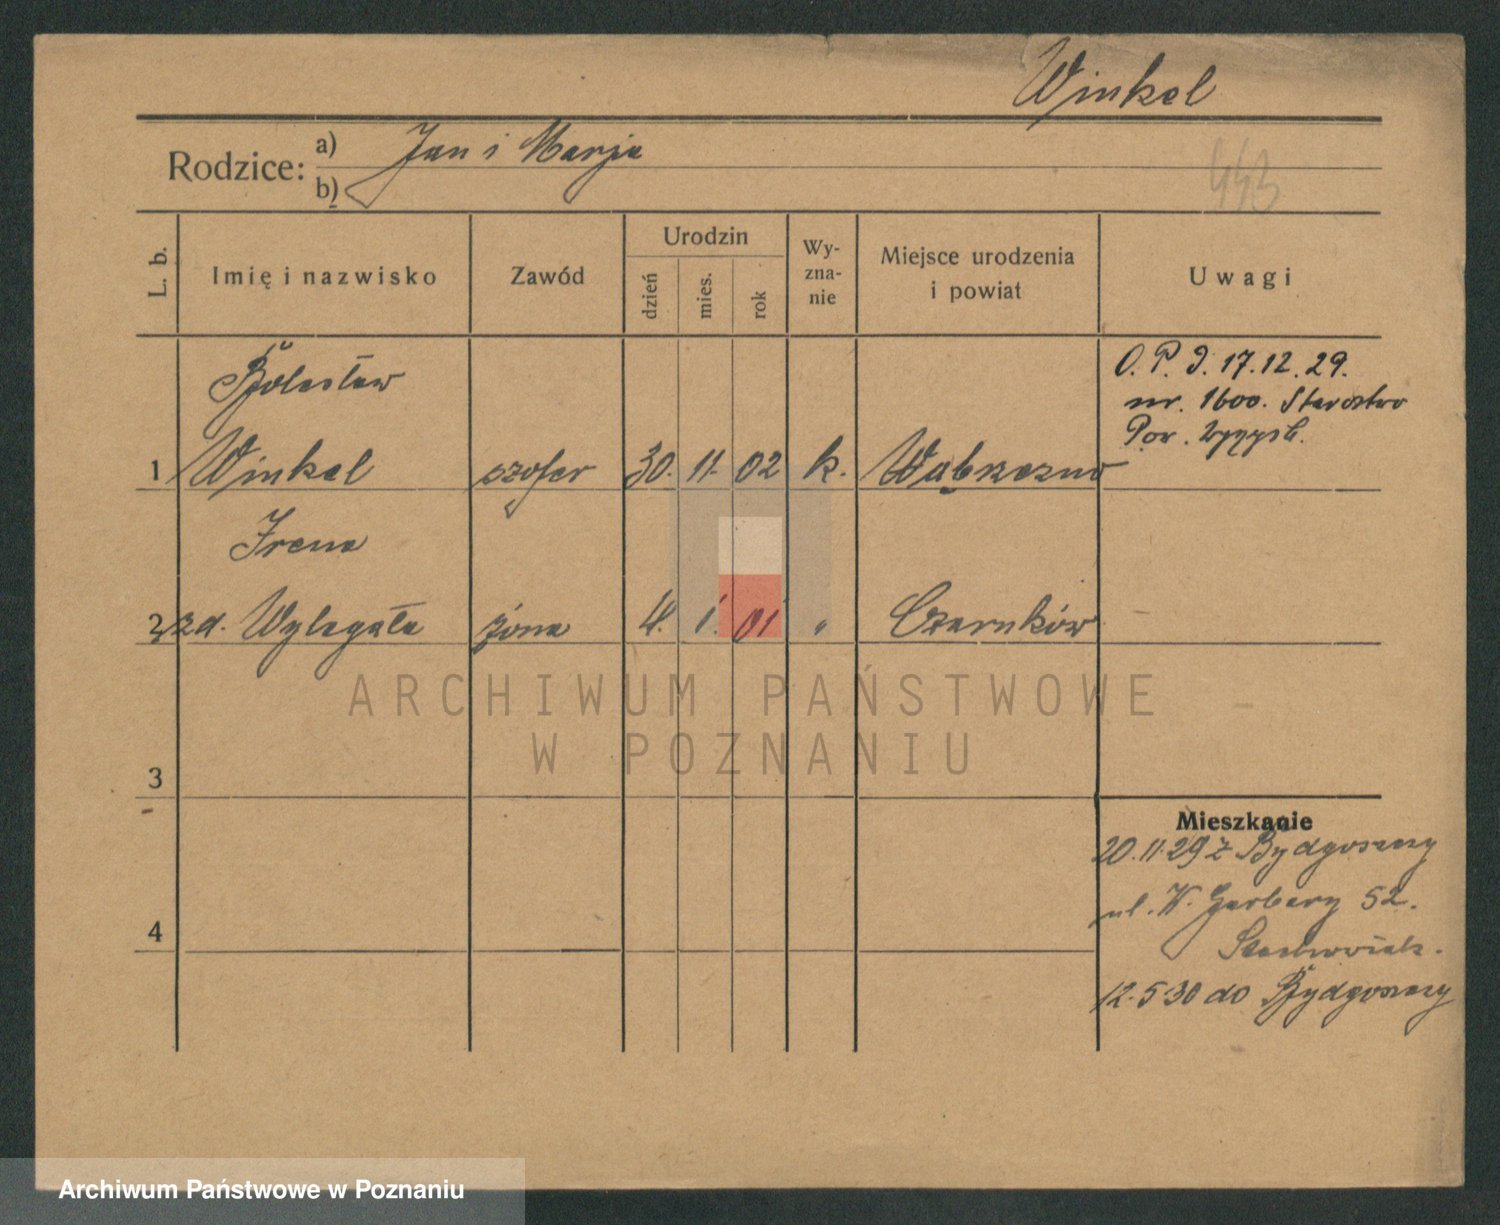 Winkel
Rodzice: a) Jan i Marja
b)
443
L. b.
Imię i nazwisko
Zawód
Urodzin
dzień
mies.
rok
Wy-
zna-
nie
Miejsce urodzenia
i powiat
Uwagi
Bolesław
1 Winkel szofer 30. 11. 02 k. Wąbrzezno
O. P. J. 17.12.29.
nr. 1600. Starostwo
Pow. Wyrzysk.
Irena
2 zd. Wylegała żona 4. 1. 01 "  Czarnków
3
4
Mieszkanie
20.11.29 z Bydgoszczy
ul. W. Garbary 52.
Stachowiak.
12.5.30 do Bydgoszczy
ARCHIWUM PAŃSTWOWE
W POZNANIU
Archiwum Państwowe w Poznaniu